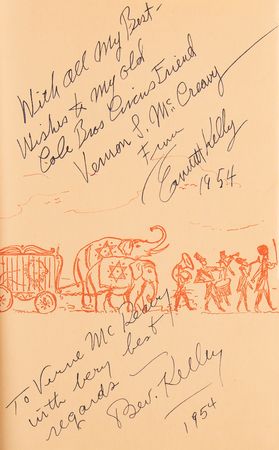 With all My Best-
Wishes to my old
Cole Bros Circus Friend
Vernon L. McCreavy
From
Emmett Kelly
1954
To Verne McReavy
with very best
regards –
Bev. Kelley
1954